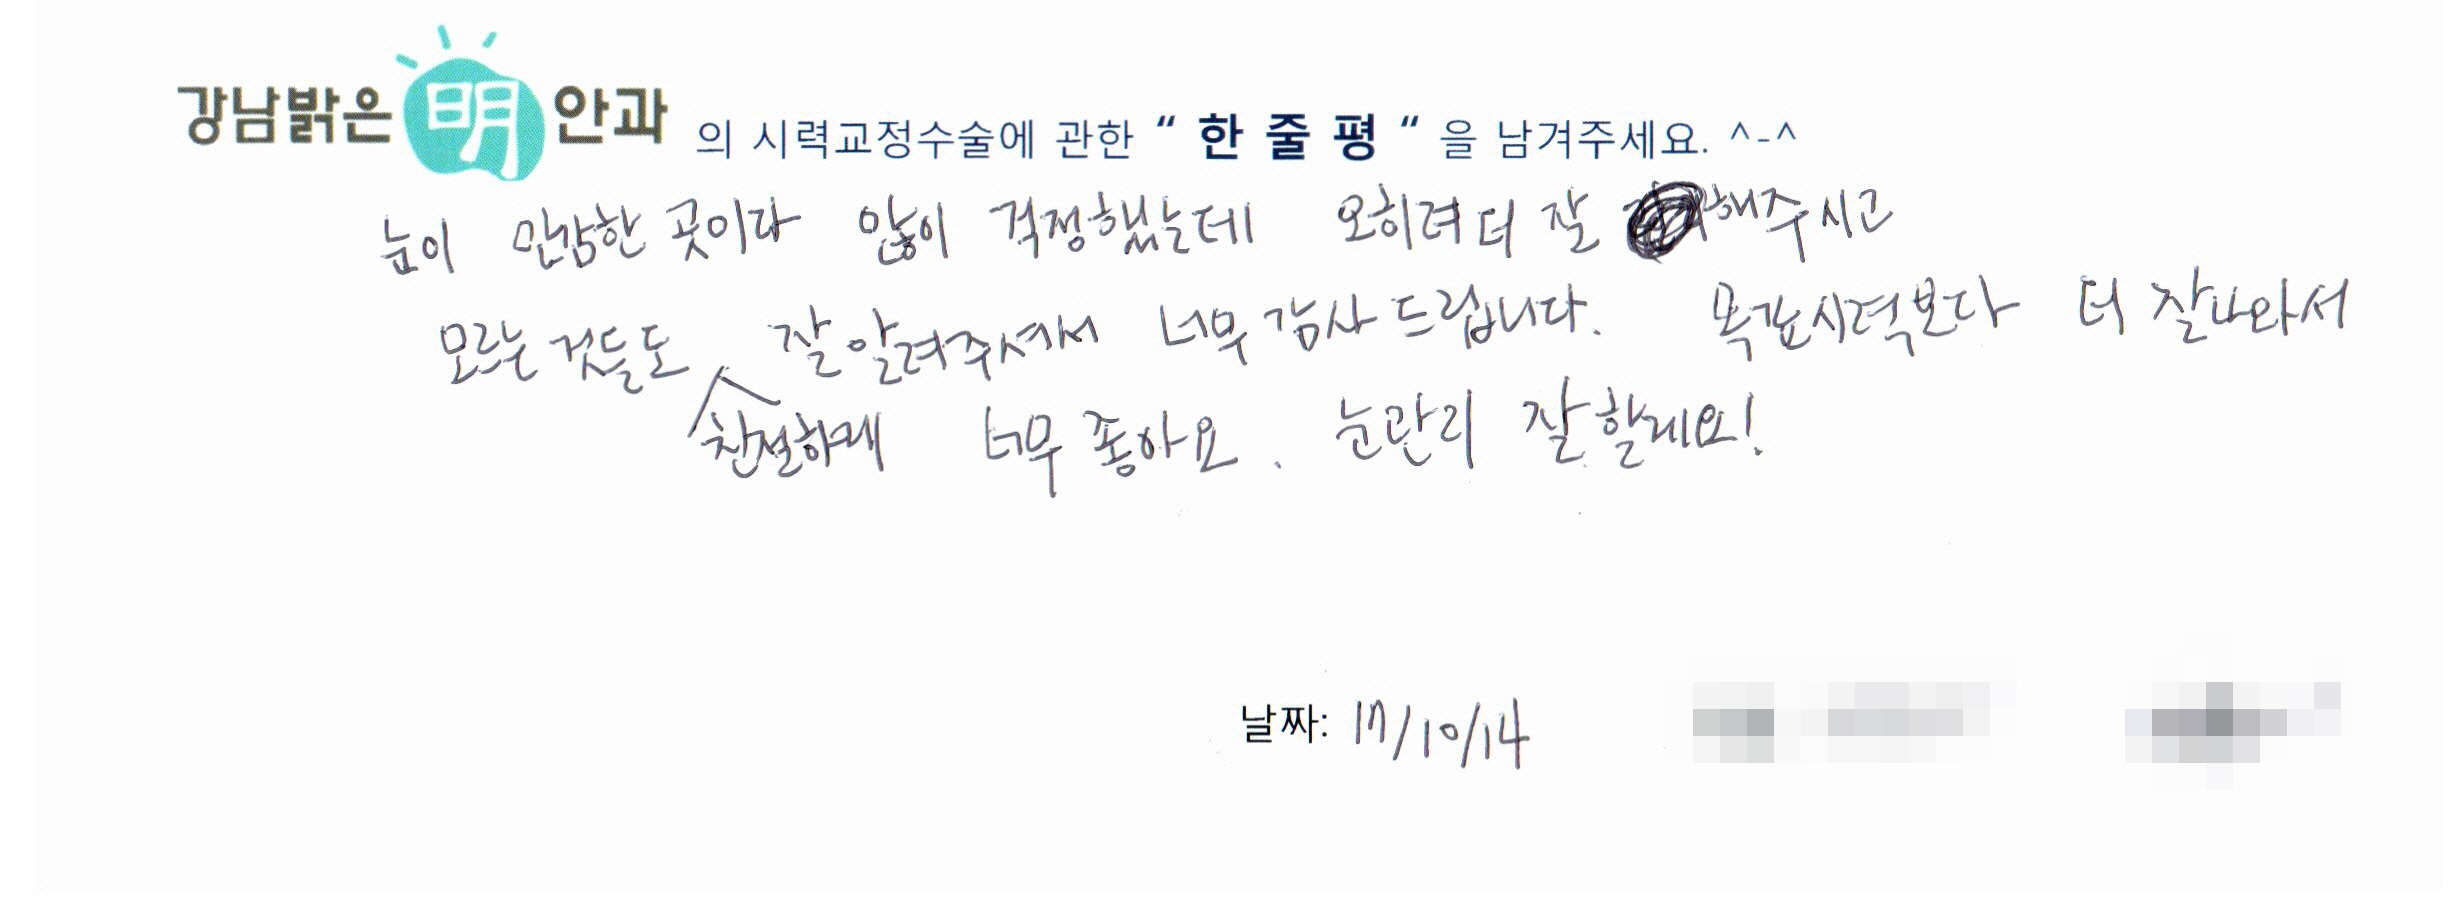 강남밝은 明 안과 의 시력교정수술에 관한 “ 한 줄 평 “ 을 남겨주세요. ^-^
눈이 민감한 곳이다 많이 걱정했는데 오히려 더 잘 해주시고
모르는 것들도 잘 알려주셔서 너무 감사드립니다. 목표시력보다 더 잘나와서
친절하게 너무 좋아요. 눈관리 잘할게요!
날짜: 17/10/14